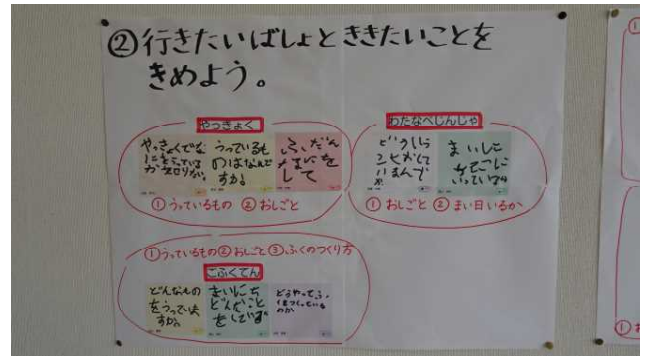 ②行きたいばしょとききたいことを
きめよう。
やっきょく
やっきょくでな
にをうっている
か知りたい。
うっているも
のはなんで
すか。
ふだん
なにを
して
①うっているもの ②おしごと
わたなべじんじゃ
まいに
①おしごと ②まい日いるか
①うっているもの②おしごと③ふくのつくり方
ごふくてん
どんなもの
をうっていま
すか。
まいにち
どんなこと
をしている
どうやってふ
くをつくっている
のか
①
①お